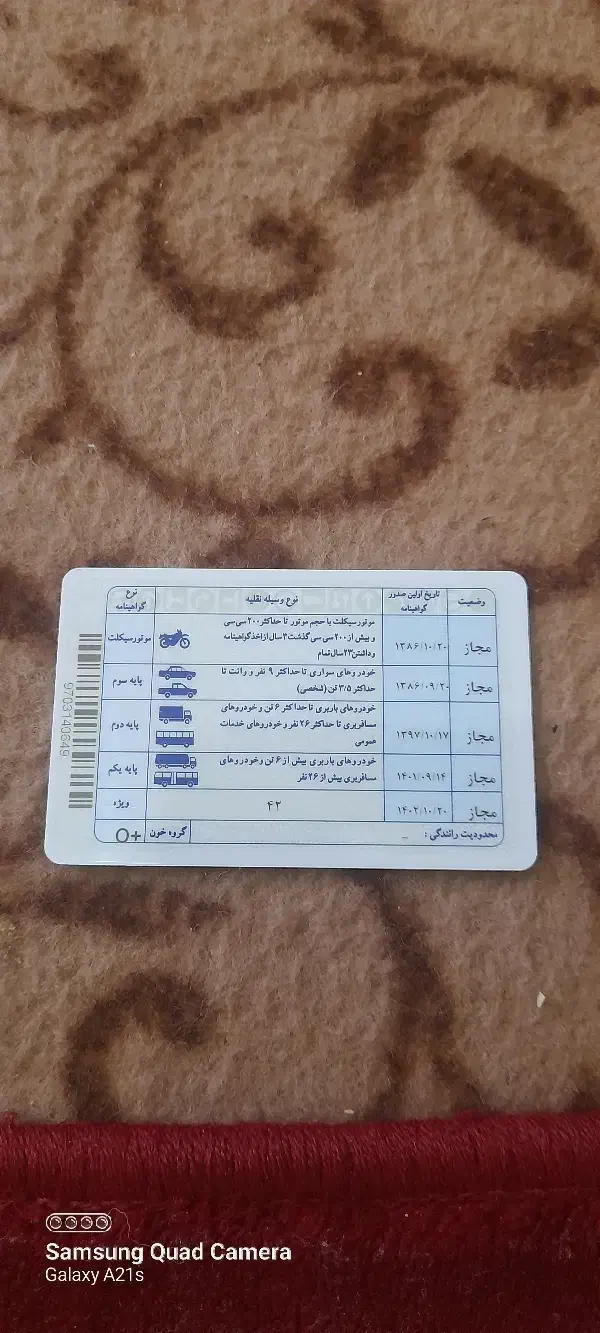 وضعیت
تاریخ اولین صدور گواهینامه
نوع وسیله نقلیه
نوع گواهینامه
مجاز
۱۳۸۶/۱۰/۲۰
موتورسیکلت با حجم موتور تا حداکثر ۲۰۰ سی سی
و بیش از ۲۰۰ سی سی گذشت ۳ سال از اخذ گواهینامه
و داشتن ۲۳ سال تمام
موتورسیکلت
مجاز
۱۳۸۶/۰۹/۲۰
خودروهای سواری تا حداکثر ۹ نفر و وانت تا
حداکثر ۳/۵ تن (شخصی)
پایه سوم
مجاز
۱۳۹۷/۱۰/۱۷
خودروهای باربری تا حداکثر ۶ تن و خودروهای
مسافربری تا حداکثر ۲۶ نفر و خودروهای خدمات
عمومی
پایه دوم
مجاز
۱۴۰۱/۰۹/۱۴
خودروهای باربری بیش از ۶ تن و خودروهای
مسافربری بیش از ۲۶ نفر
پایه یکم
مجاز
۱۴۰۲/۱۰/۲۰
۴۲
ویژه
محدودیت رانندگی : _
گروه خون
O+
9703140649
Samsung Quad Camera
Galaxy A21s